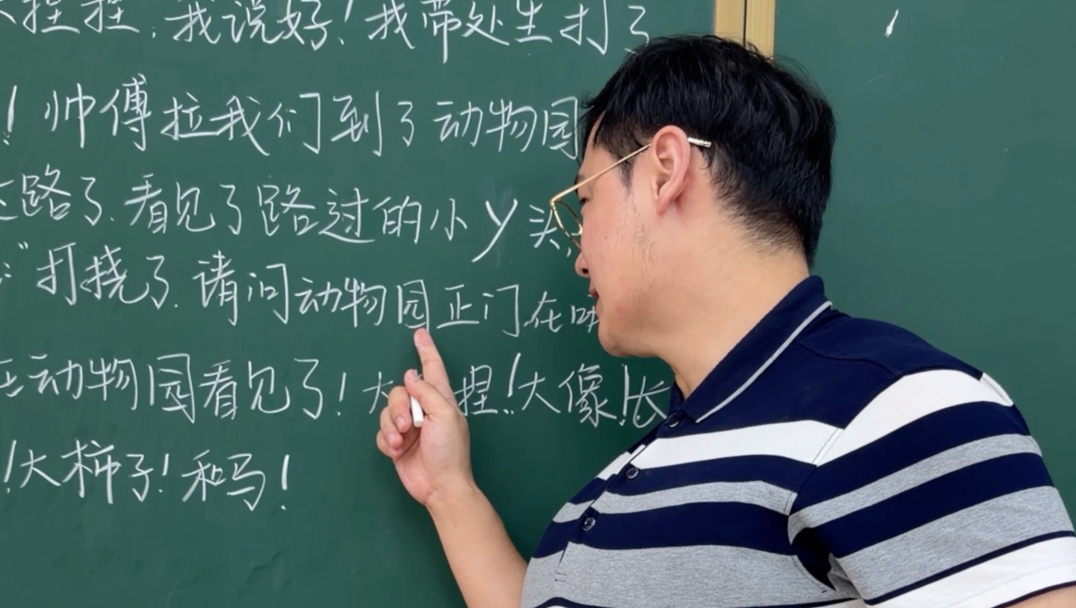 捏捏,我说好!我带处生打了
!帅傅拉我们到了动物园
路了.看见了路过的小y头,
"打挠了.请问动物园正门在
动物园看见了!大捏!大像!长
!大柿子!和马!